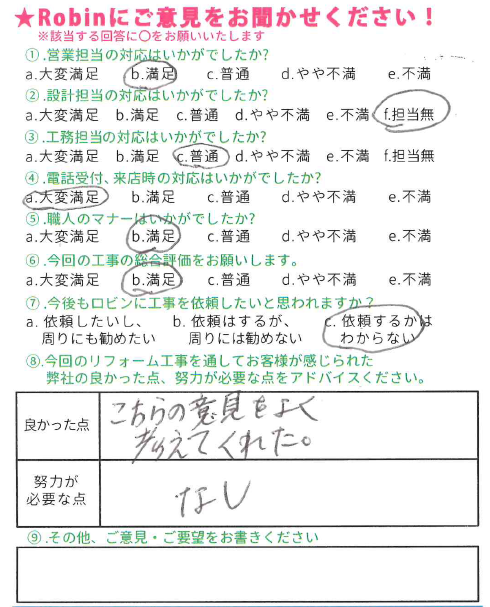 ★Robinにご意見をお聞かせください！
※該当する回答に〇をお願いいたします
①.営業担当の対応はいかがでしたか?
a.大変満足 b.満足 c.普通 d.やや不満 e.不満
②.設計担当の対応はいかがでしたか?
a.大変満足 b.満足 c.普通 d.やや不満 e.不満 f.担当無
③.工務担当の対応はいかがでしたか?
a.大変満足 b.満足 c.普通 d.やや不満 e.不満 f.担当無
④.電話受付、来店時の対応はいかがでしたか?
a.大変満足 b.満足 c.普通 d.やや不満 e.不満
⑤.職人のマナーはいかがでしたか?
a.大変満足 b.満足 c.普通 d.やや不満 e.不満
⑥.今回の工事の総合評価をお願いします。
a.大変満足 b.満足 c.普通 d.やや不満 e.不満
⑦.今後もロビンに工事を依頼したいと思われますか？
a. 依頼したいし、 b. 依頼はするが、 c. 依頼するかは
周りにも勧めたい 周りには勧めない わからない
⑧.今回のリフォーム工事を通してお客様が感じられた
弊社の良かった点、努力が必要な点をアドバイスください。
良かった点
こちらの意見をよく
考えてくれた。
努力が
必要な点
なし
⑨.その他、ご意見・ご要望をお書きください